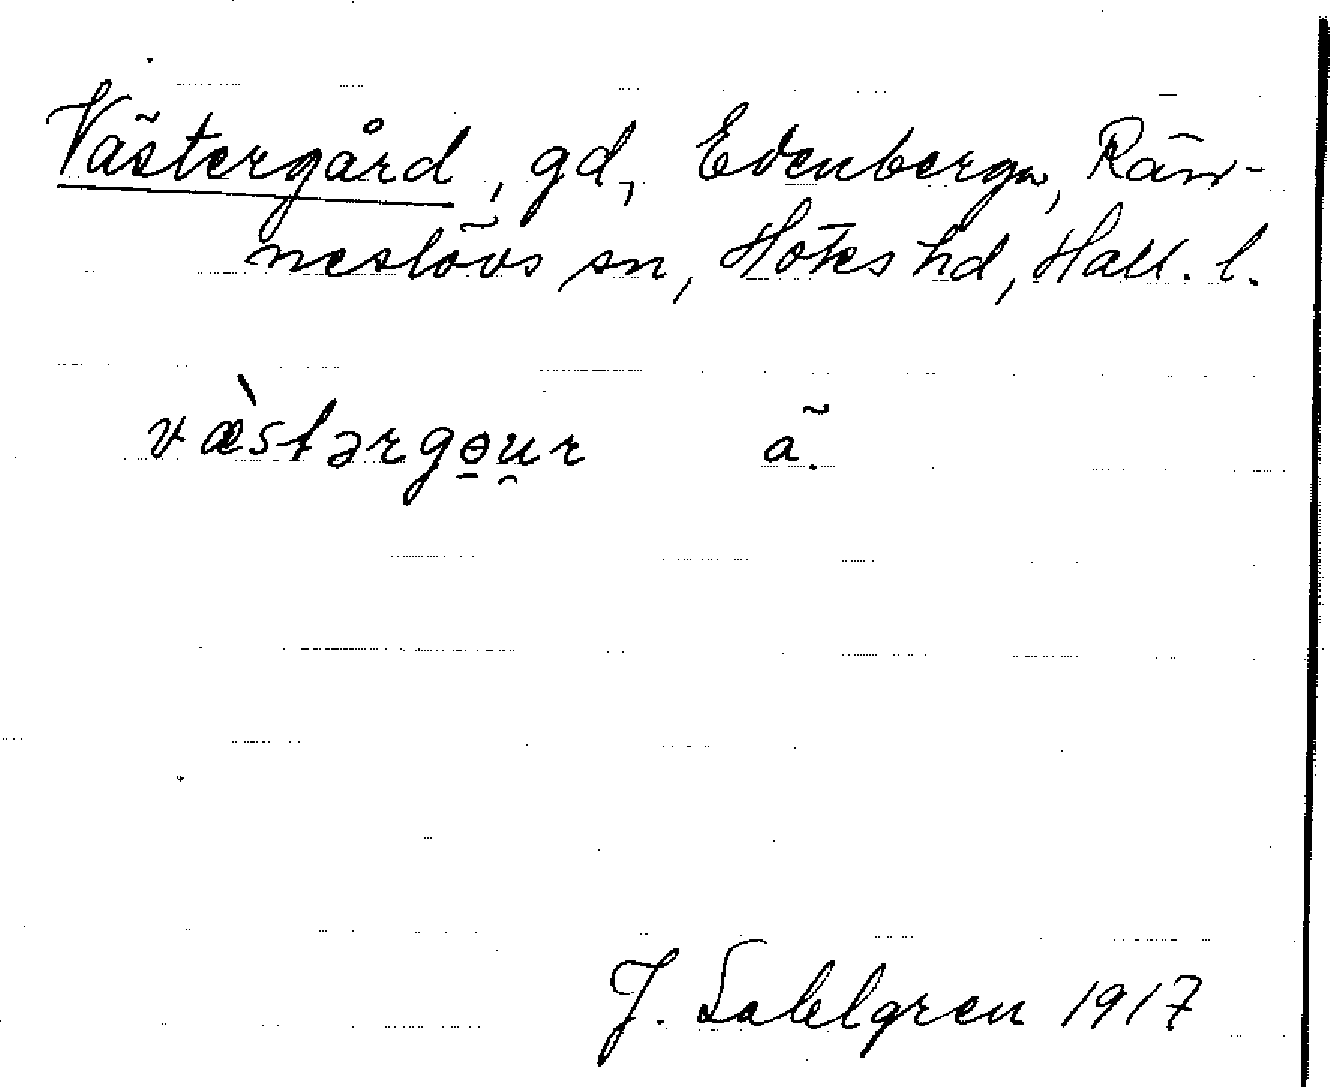 Västergård, gd, Edenberga, Rän-
neslövs sn, Höks hd, Hall. l.
væ̀stərgo̱u̯r ä.
J. Sahlgren 1917